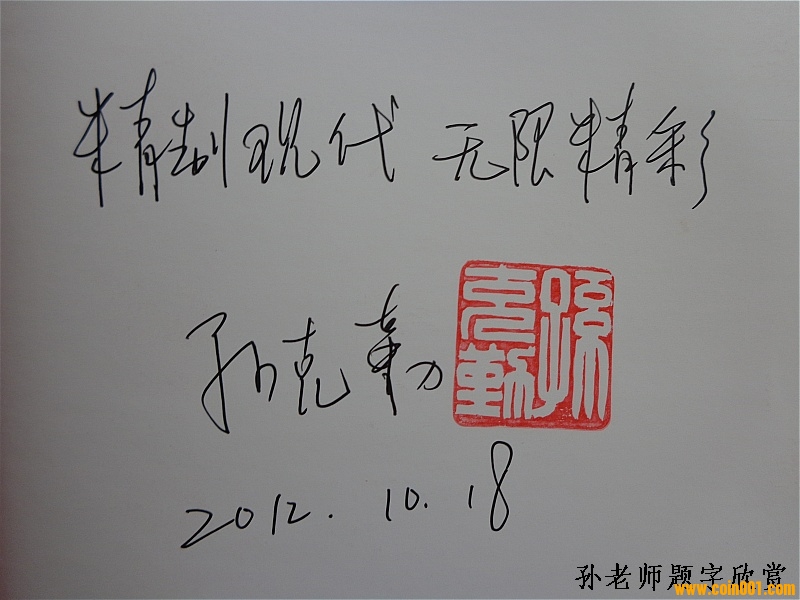 精制现代 无限精彩
孙克勤
孫克勤
2012.10.18
孙老师题字欣赏
www.coin001.com